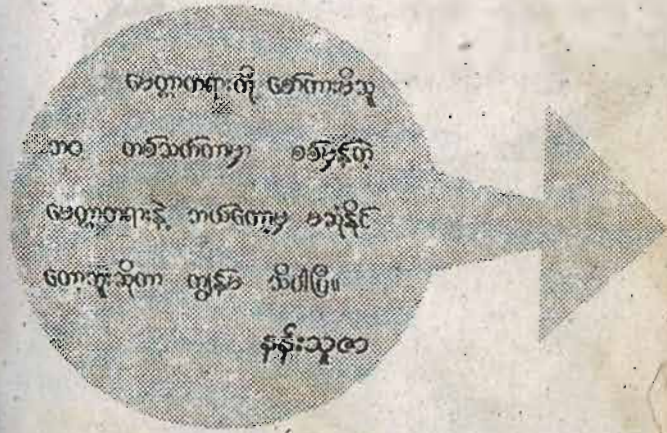 မေတ္တာတရားကို စော်ကားမိသူ
ဘဝ တစ်သက်တာမှာ စစ်မှန်တဲ့
မေတ္တာတရားနဲ့ ဘယ်တော့မှ မဆုံနိုင်
တော့ဘူးဆိုတာ ကျွန်မ သိပါပြီ။
နန်းသူဇာ